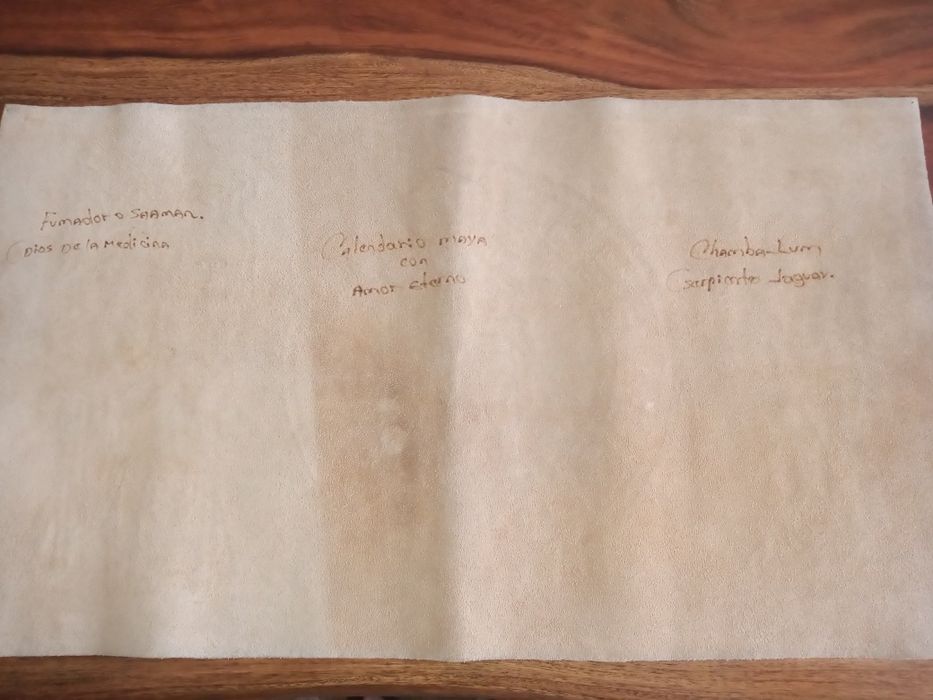 Fumador o SHAMAN.
(Dios De la Medicina
Calendario maya
con
Amor Eterno
Chamba-Lum
(serpiente Jaguar.